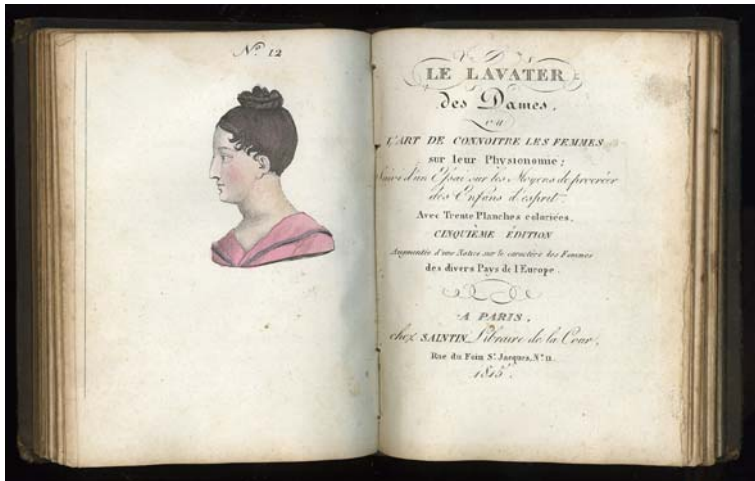 Nº 12
LE LAVATER
des Dames,
ou
L'ART DE CONNOITRE LES FEMMES
sur leur Physionomie;
Suivi d'un Essai sur les Moyens de procréer
des Enfans d'esprit.
Avec Trente Planches coloriées.
CINQUIÈME ÉDITION
Augmentée d'une Notice sur le caractère des Femmes
des divers Pays de l'Europe.
A PARIS,
chez SAINTIN, Libraire de la Cour,
Rue du Foin St. Jacques, Nº 11.
1815.